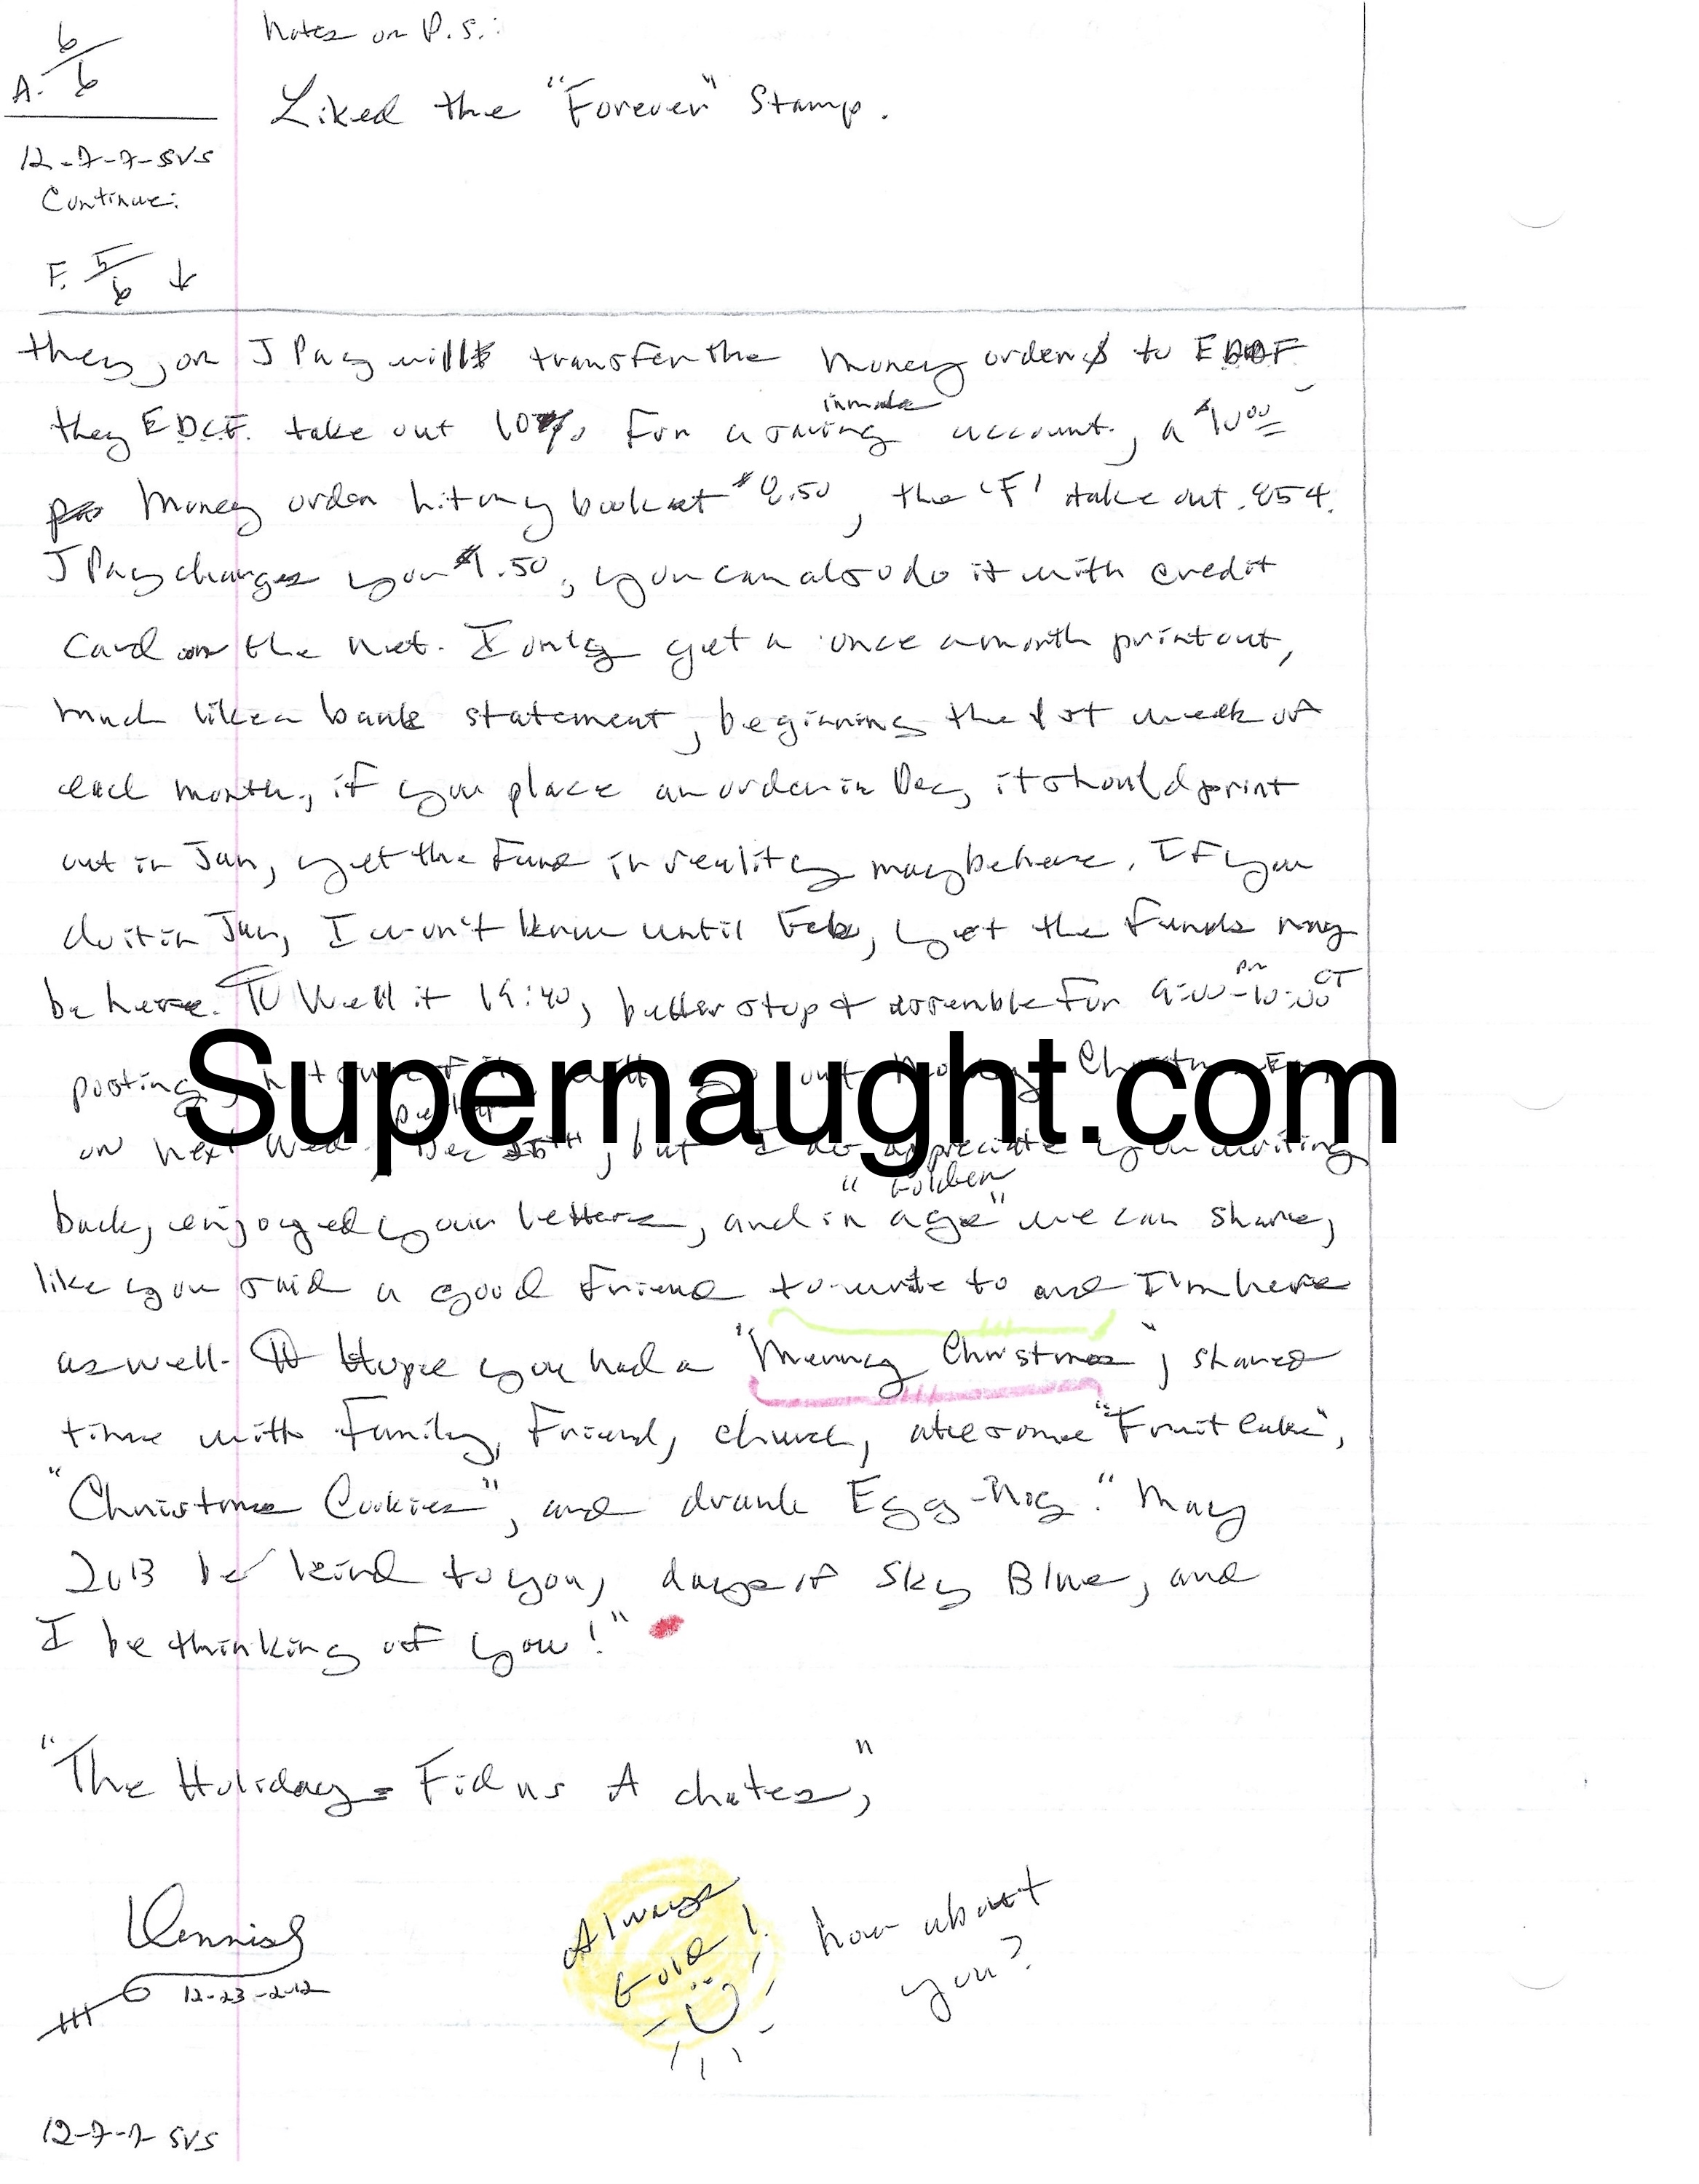 Notes on P.S.:
A. 6/6
Liked the "Forever" Stamp.
12-7-7-SVS
Continue:
F. 5/6 ↓
they, or J Pay will transfer the money order to EDCF
they EDCF. take out 10% for a saving inmate account, a $10.00
Money order hit my book at $8.50, the 'F' take out .85¢.
J Pay charges you $1.50, you can also do it with credit
card on the net. I only get a once a month print out,
much like a bank statement, beginning the 1st week of
each month, if you place an order in Dec, it should print
out in Jan, yet the fund in reality may be here. If you
do it in Jan, I won't know until Feb, yet the funds may
be here. Well it 19:40, better stop & assemble for 9:00-10:00 pm CT
posting,
on next Wed. Dec 26th, but I do appreciate your writing
back, enjoyed your letters, and in "Golden age" we can share,
like you said a good friend to write to and I'm here
as well. Hope you had a "Merry Christmas", shared
time with Family, Friend, church, ate some "Fruit Cake",
"Christmas Cookies", and drank Egg-Nog. "May
2013 be kind to you, days of Sky Blue, and
I be thinking of you!"
"The Holiday = Fidus Achates,"
Dennis
12-23-2012
Always Gold!
how about
you?
12-7-7-SVS
Supernaught.com